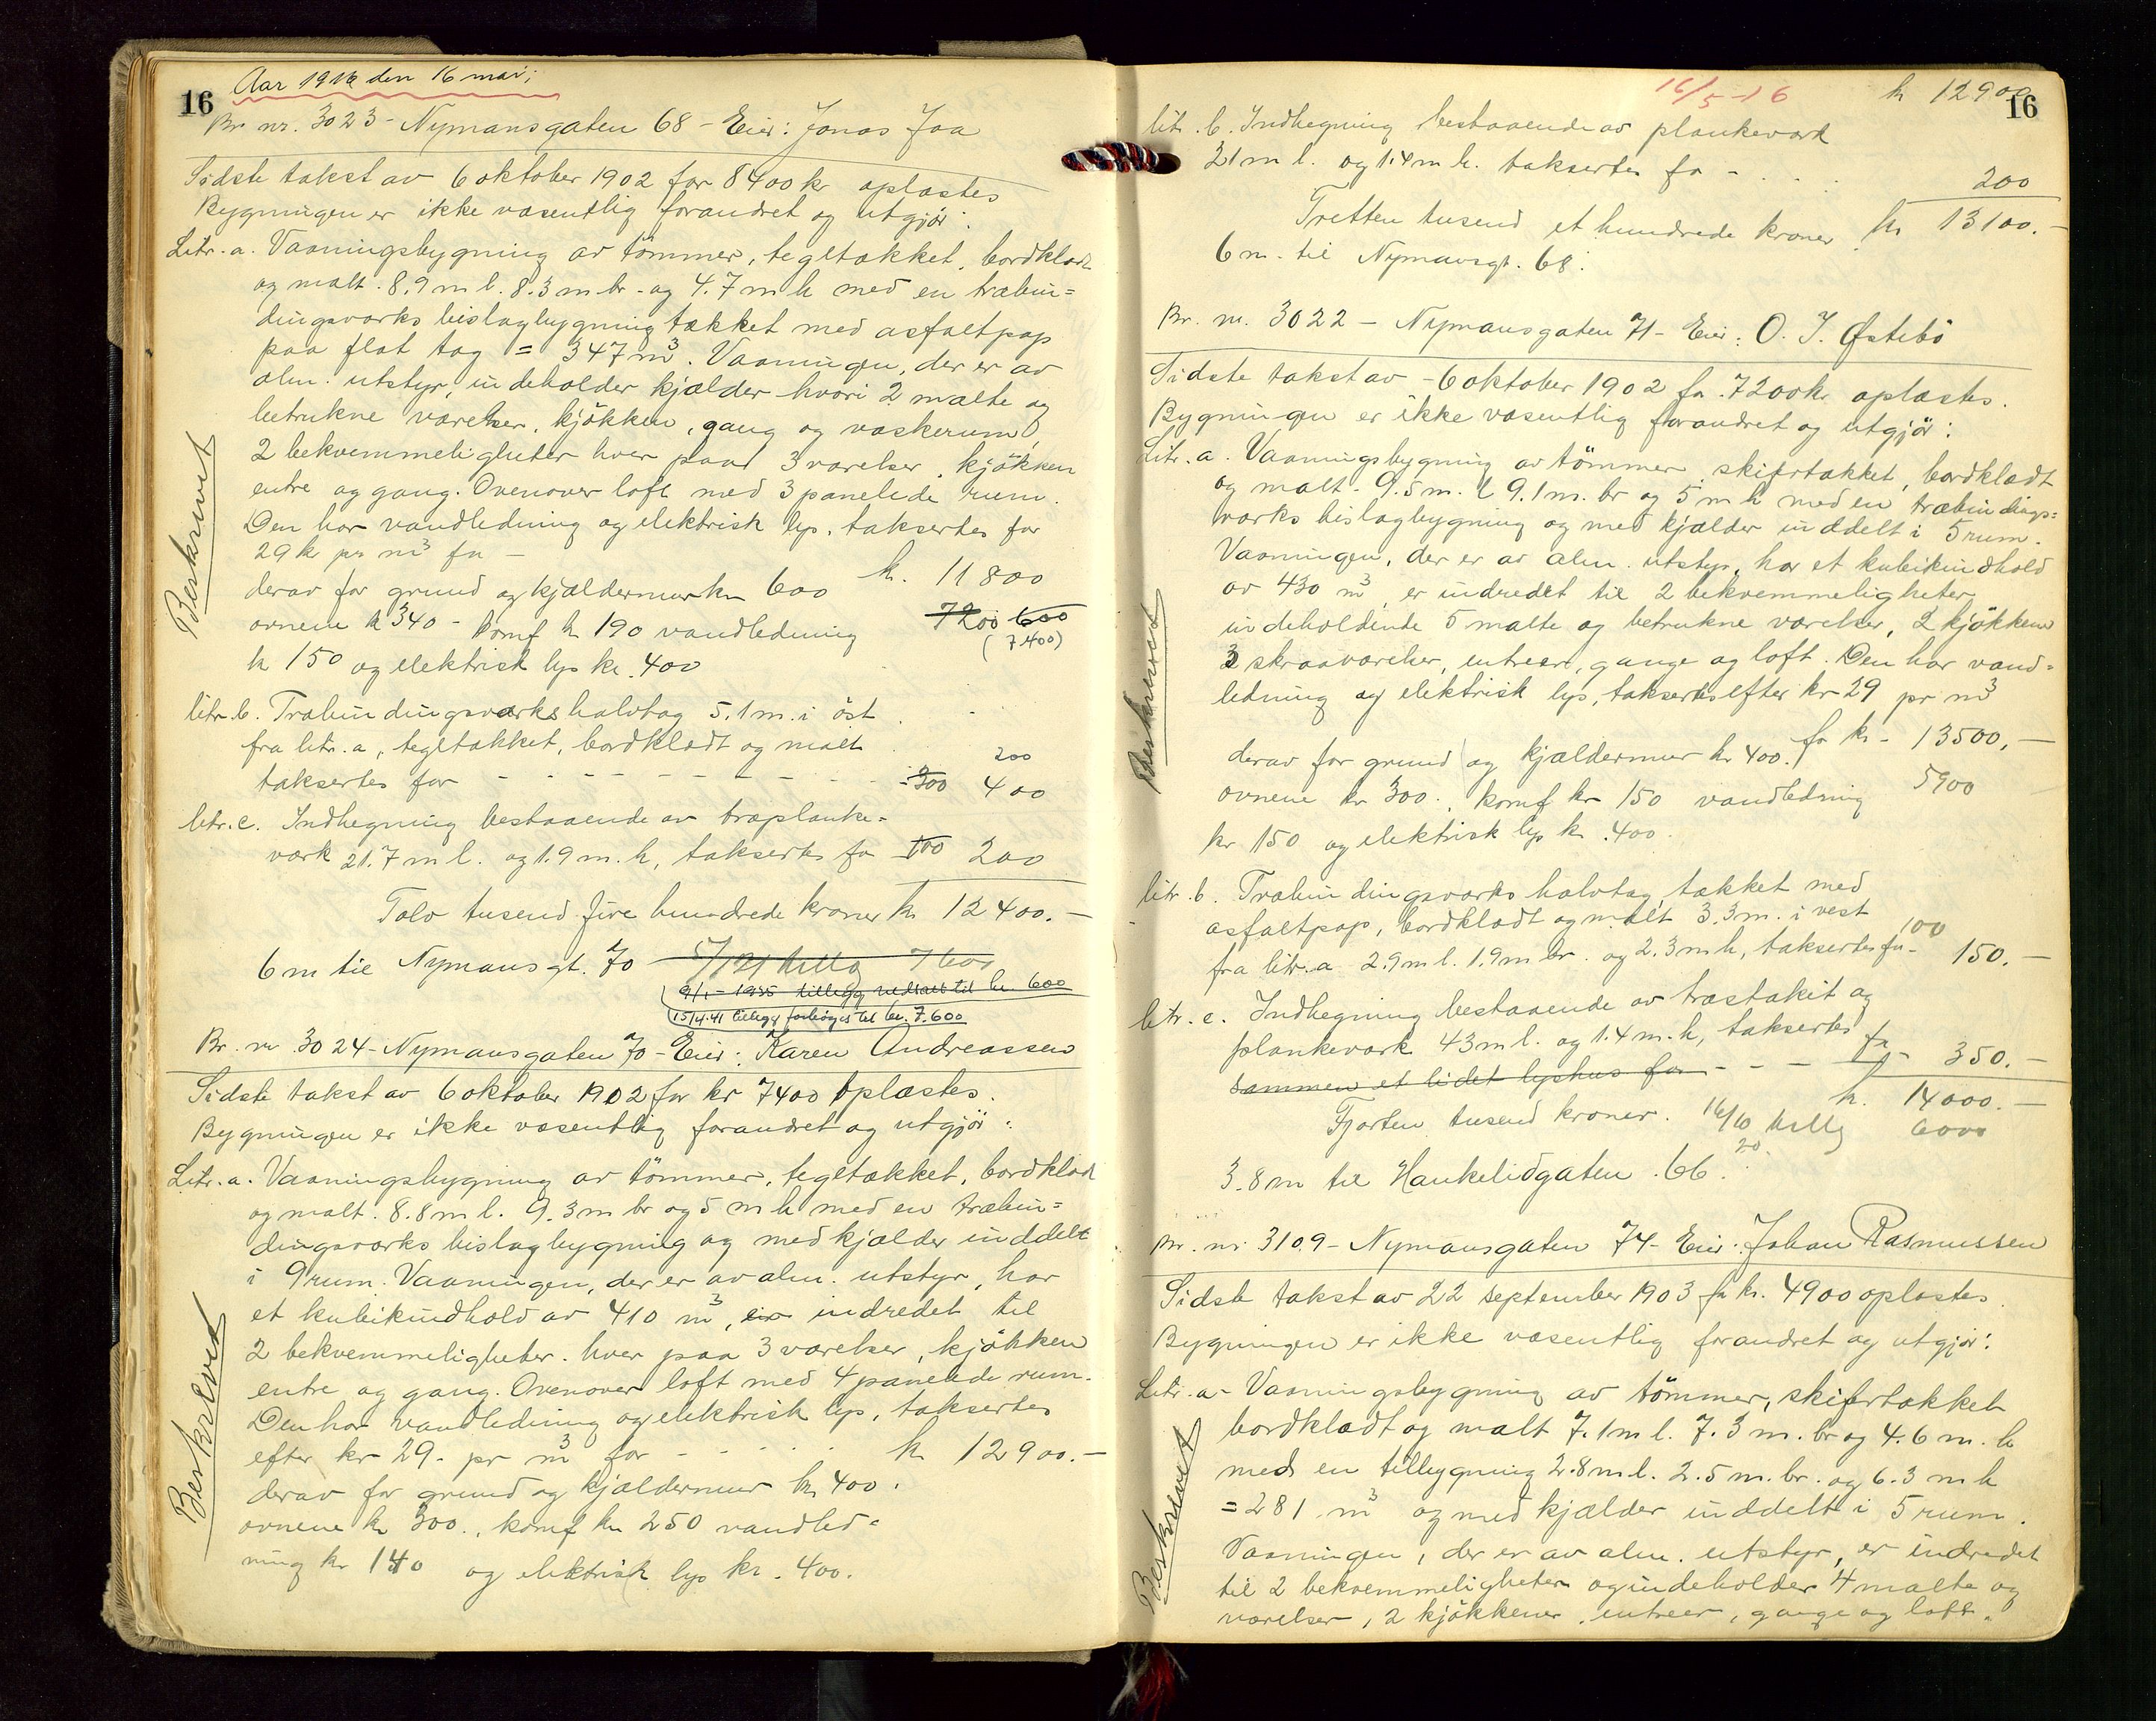 16
Aar 1916 den 16 mai;
Br nr. 3023 - Nymansgaten 68 - Eier: Jonas Jaa
Sidste takst av 6 oktober 1902 for 8400 kr oplæstes
Bygningen er ikke væsentlig forandret og utgjör:
Litr. a. Vaaningsbygning av tömmer, tegltækket, bordklædt
og malt. 8.9 m l. 8.3 m br. og 4.7 m h med en træbin=
dingsværks bislagbygning tækket med asfaltpap
paa flat tag = 347 m3. Vaaningen, der er av
alm. utstyr, indeholder kjælder hvori 2 malte og
betrukne værelser, kjökken, gang og vaskerum,
2 bekvemmeligheter hver paa 3 værelser, kjökken
entre og gang. Ovenover loft med 3 panelede rum.
Den har vandledning og elektrisk lys, taksertes for
29 kr pr m3 for -
kr. 11800
derav for grund og kjældermur kr 600
7200 600
ovnene kr 340 - komf kr 190 vandledning
(7400)
kr 150 og elektrisk lys kr. 400
litr. b. Træbindingsværks halvtag 5.1 m. i öst
fra litr. a, tegltækket, bordklædt og malt
200
taksertes for - - - - - - - - - 300 400
litr. c. Indhegning bestaaende av træplanke=
værk 21.7 m l. og 1.9 m. h, taksertes for 100 200
Tolv tusend fire hundrede kroner kr 12400.-
6 m til Nymansgt. 70
5/1 21 tillæg 7600
9/1 - 1935 tillegg nedsatt til kr. 600
15/4.41 tillegg forhöyes til kr. 7.600
Br. nr 3024 - Nymansgaten 70 - Eier: Karen Andreassen
Sidste takst av 6 oktober 1902 for kr 7400 oplæstes.
Bygningen er ikke væsentlig forandret og utgjör:
Litr. a. Vaaningsbygning av tömmer, tegltækket, bordklædt
og malt. 8.8 m l. 9.3 m br og 5 m h med en træbin=
dingsværks bislagbygning og med kjælder inddelt
i 9 rum. Vaaningen, der er av alm. utstyr, har
et kubikindhold av 410 m3, er indredet til
2 bekvemmeligheter. hver paa 3 værelser, kjökken
entre og gang. Ovenover loft med 4 panelede rum.
Den har vandledning og elektrisk lys, taksertes
efter kr 29.- pr m3 for - - - - - kr 12900.-
derav for grund og kjældermur kr 400.
ovnene kr 300., komf kr 250 vandled=
ning kr 140 og elektrisk lys kr. 400.
Beskrevet
Beskrevet
16/5-16
kr 12900
16
litr. b. Indhegning bestaaende av plankeværk
21 m l. og 1.4 m h. taksertes for - . . .
200
Tretten tusend et hundrede kroner kr 13100.-
6 m. til Nymansgt. 68.
Br. nr. 3022 - Nymansgaten 71 - Eier: O. J. Østebö
Sidste takst av - 6 oktober 1902 for 7200 kr oplæstes.
Bygningen er ikke væsentlig forandret og utgjör:
Litr. a. Vaaningsbygning av tömmer, skifertækket, bordklædt
og malt - 9.5 m. l 9.1 m. br og 5 m h med en træbindings=
værks bislagbygning og med kjælder inddelt i 5 rum.
Vaaningen, der er av alm. utstyr, har et kubikindhold
av 430 m3, er indredet til 2 bekvemmeligheter
indeholdende 5 malte og betrukne værelser, 2 kjökkener
3 skraaværelser, entreer, gange og loft. Den har vand=
ledning og elektrisk lys, taksertes efter kr 29 pr m3
for kr - 13500,-
derav for grund og kjældermur kr 400.
5900
ovnene kr 300., komf kr 150 vandledning
kr 150 og elektrisk lys kr. 400.
litr. b. Træbindingsværks halvtag, tækket med
asfaltpap, bordklædt og malt 3.3 m. i vest
100
fra litr. a 2.9 m l. 1.9 m br. og 2.3 m h, taksertes for - 150.-
litr. c. Indhegning bestaaende av træstakit og
plankeværk 43 m l. og 1.4 m. h, taksertes
for - 350.-
sammen et lidet lyshus for - - -
kr. 14000.-
Fjorten tusend kroner. 16/10 20 tillæg 6000
3.8 m til Haukelidgaten 66.
Br. nr 3109 - Nymansgaten 74 - Eier: Johan Rasmussen
Sidste takst av 22 september 1903 for kr. 4900 oplæstes
Bygningen er ikke væsentlig forandret og utgjör:
Litr. a - Vaaningsbygning av tömmer, skifertækket
bordklædt og malt 7.1 m l. 7.3 m. br og 4.6 m. h
med en tilbygning 2.8 m l. 2.5 m. br. og 6.3 m h
= 281 m3 og med kjælder inddelt i 5 rum.
Vaaningen, der er av alm. utstyr, er indredet
til 2 bekvemmeligheter og indeholder 4 malte og
værelser, 2 kjökkener, entreer, gange og loft.
Beskrevet
Beskrevet